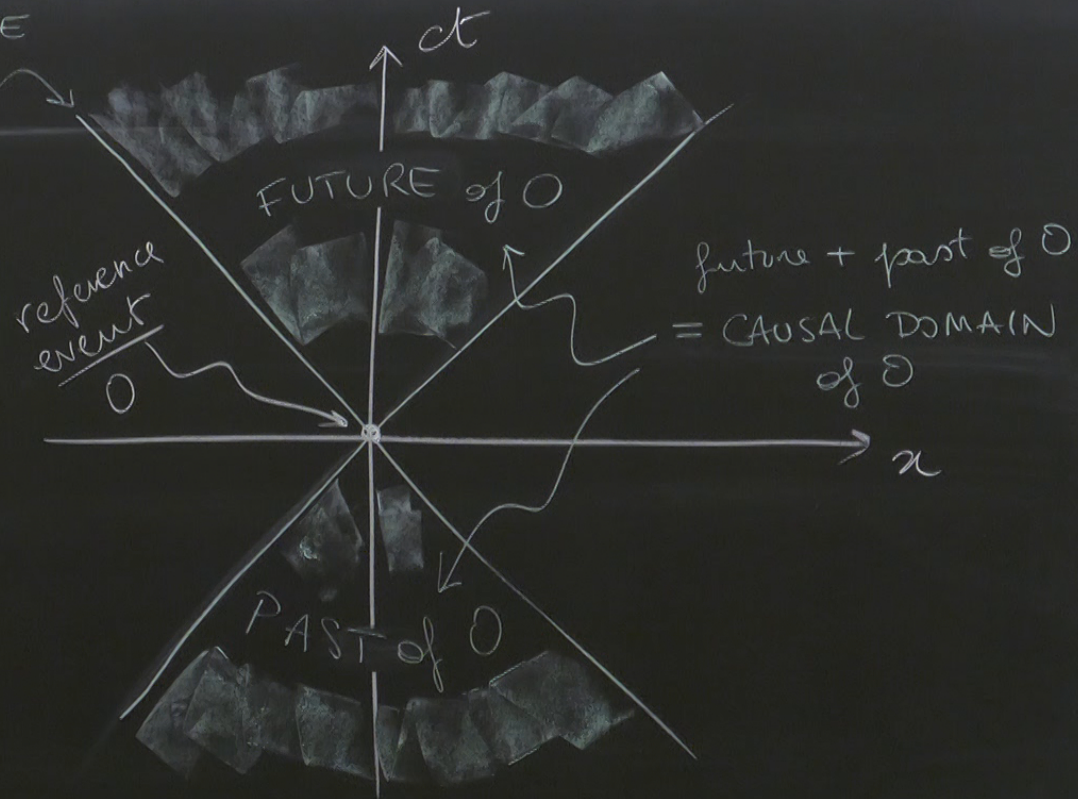 E
ct
FUTURE of O
reference
event
O
future + past of O
= CAUSAL DOMAIN
of O
x
PAST of O